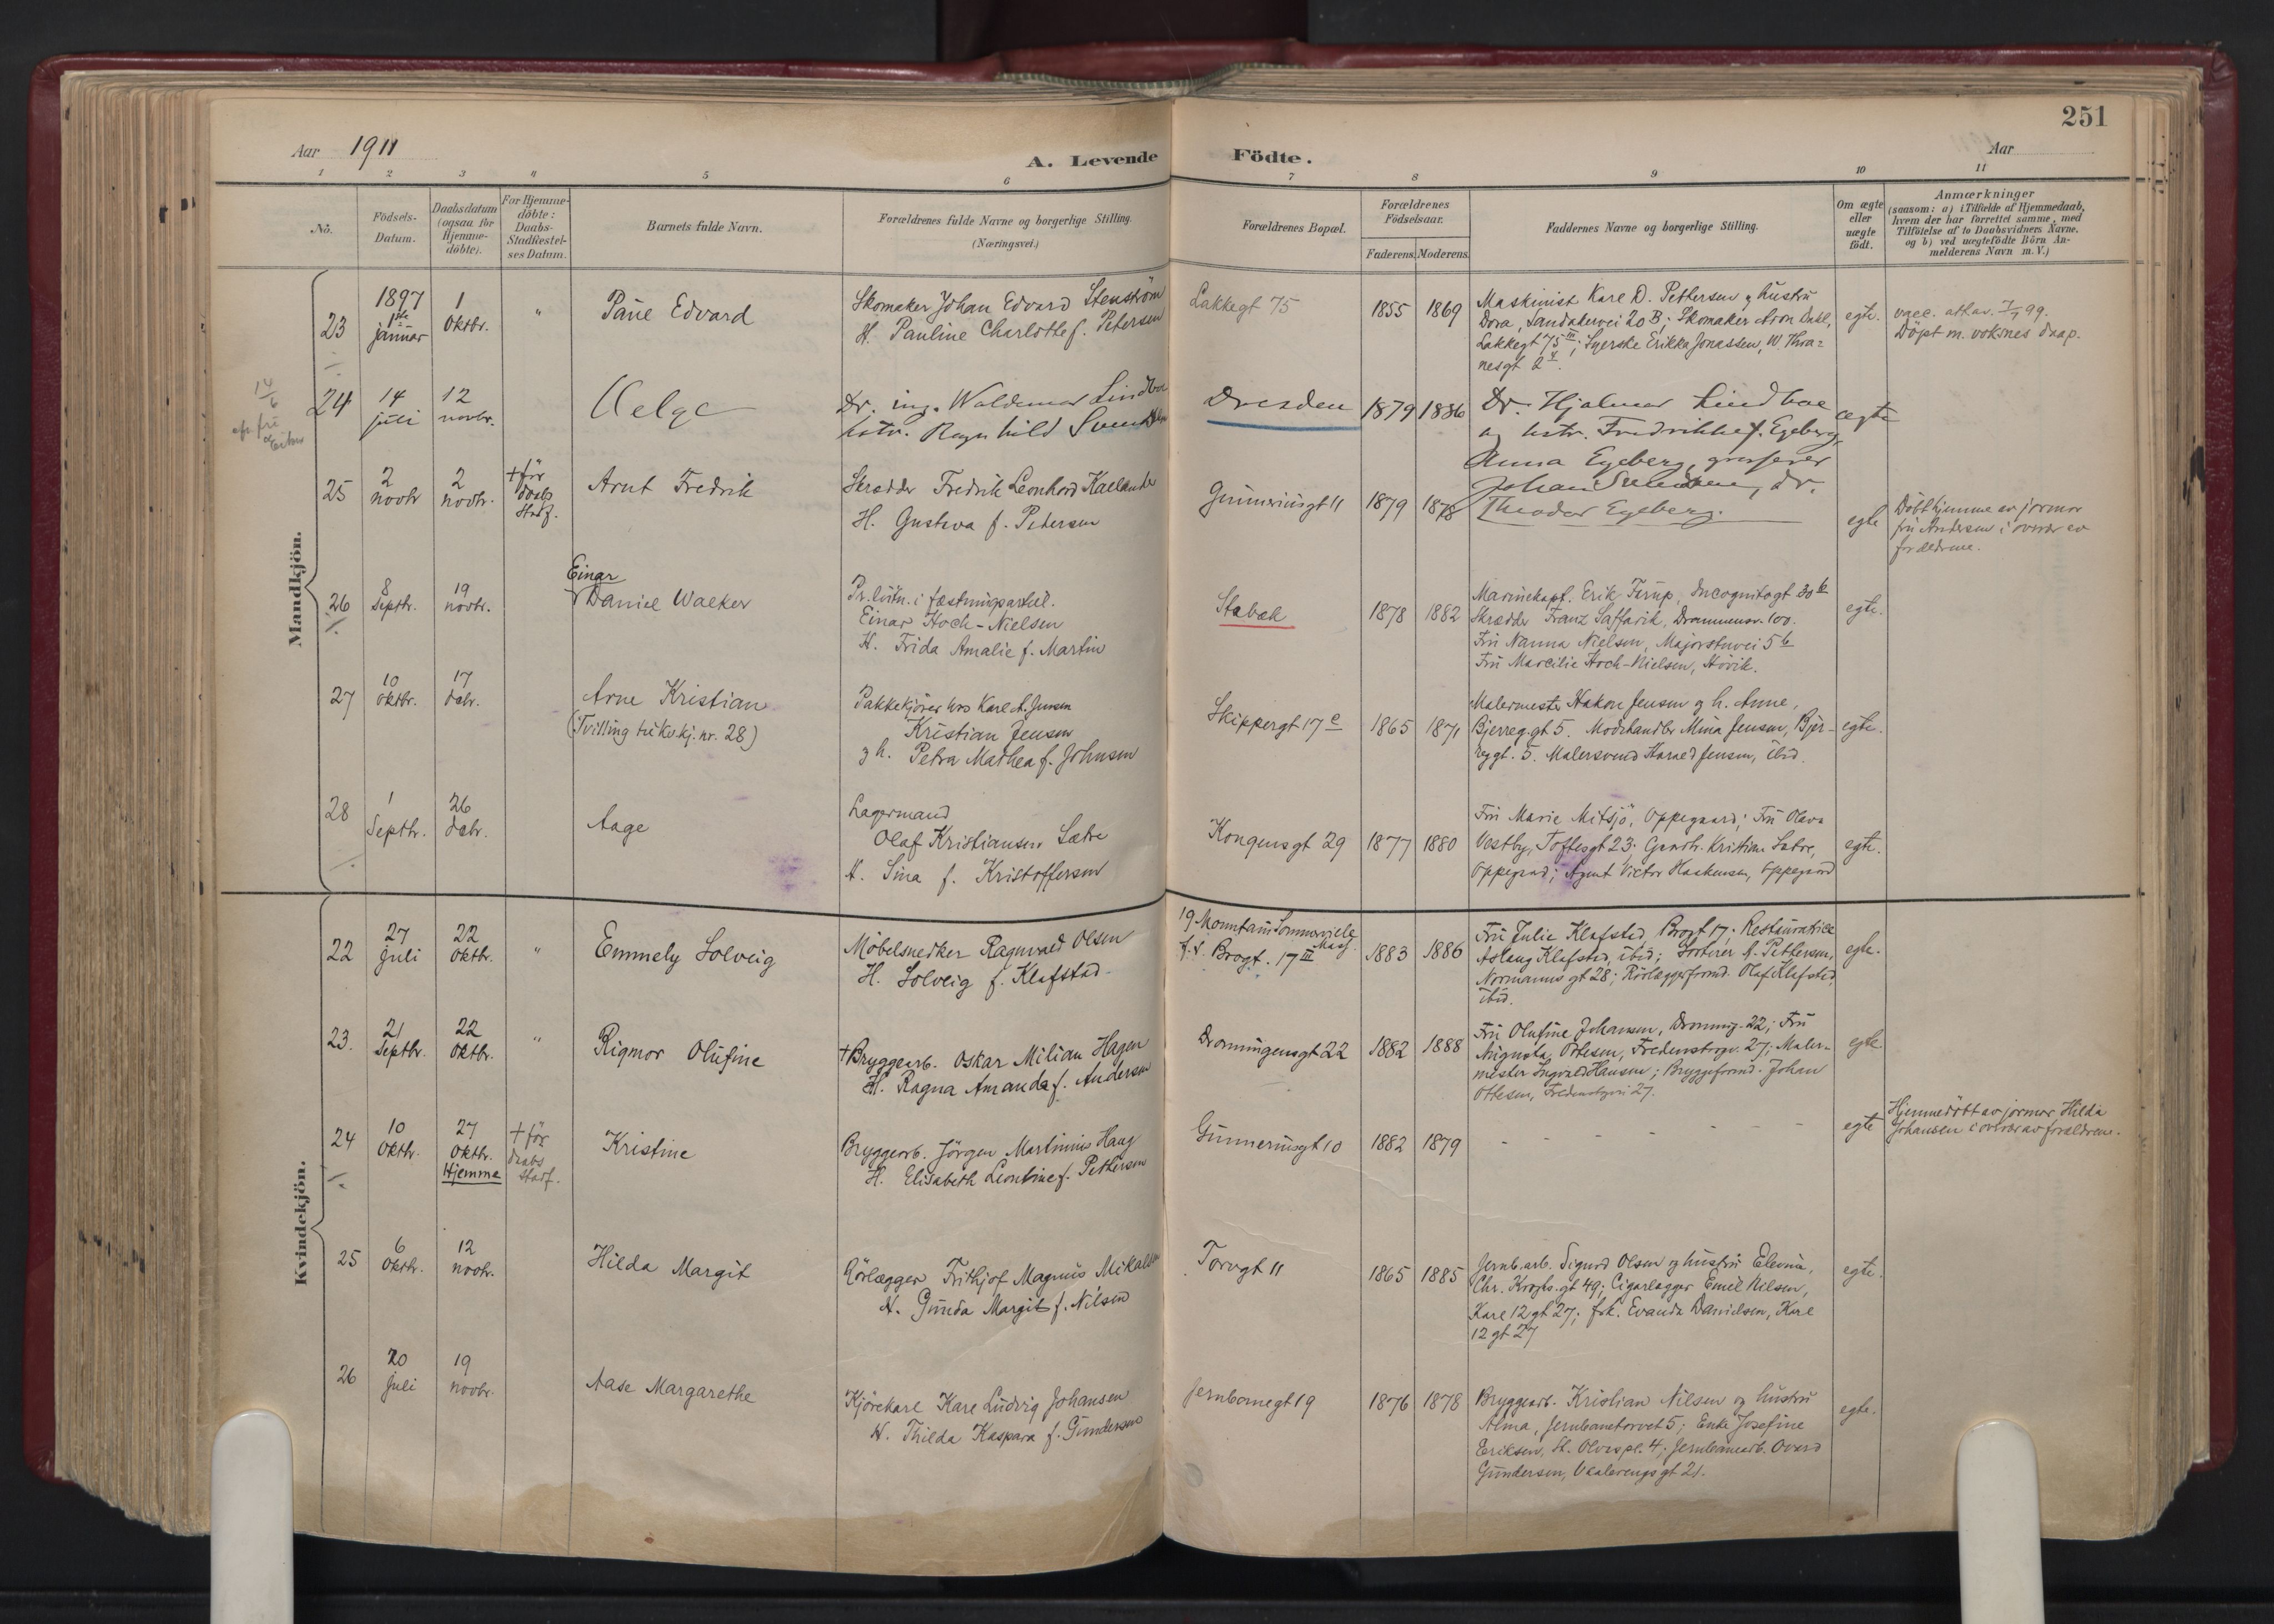 251
Aar 1911
A. Levende Födte.
Aar
1 2 3 4 5 6 7 8 9 10 11
No.
Födsels-Datum.
Daabsdatum (ogsaa for Hjemme-döbte).
For Hjemme-döbte: Daabs-Stadfæstel-ses Datum.
Barnets fulde Navn.
Forældrenes fulde Navne og borgerlige Stilling.
(Næringsvei.)
Forældrenes Bopæl.
Forældrenes Födselsaar.
Faderens. Moderens.
Faddernes Navne og borgerlige Stilling.
Om ægte eller uægte födt.
Anmærkninger
(saasom: a) i Tilfælde af Hjemmedaab,
hvem der har forrettet samme, med
Tilföielse af to Daabsvidners Navne.
og b) ved uægtefödte Börn An-
melderens Navn m.V.)
Mandkjön.
23
1897
1ste januar
1 Oktbr.
"
Paul Edvard
Skomaker Johan Edvard Stenström
H. Pauline Charlotte f. Petersen
Lakkegt 75
1855 1869
Maskinist Karl D. Pettersen og hustru
Dora, Sandakervei 20 B; Skomaker
Lakkegt 75 III; Syerske Erikka Jonassen, W. Thra=
nesgt 2
egte.
vacc. att. av 99.
Döpt m. voksnes daap.
14/6
24
14 juli
12 novbr.
Helge
Dr. ing. Waldemar Lindboe
hstr. Ragnhild
Dresden
1879 1886
Dr. Hjalmar Lindboe
og hstr. Fredrikke f. Egeberg,
Anna Egeberg, grosserer
Johan, Dr.
Theodor Egeberg.
ægte
25
2 novbr
2 novbr.
+ för daabs Stadf.
Arnt Fredrik
Skrædder Fredrik Leonhard Kaellander
H. Gustava f. Petersen
Gunneriusgt 11
1879 1878
egte
Döbt hjemme av jormor
fru Andersen i overvær av
forældrene.
26
8 Septbr.
19 novbr.
Einar
Daniel Walker
Pr. löitn. i fæstningsartill.
Einar Hoch-Nielsen
H. Frida Amalie f. Martin
Stabæk
1878 1882
Marinekapt. Erik, Incognitogt 30 b
Skrædder Franz Saffarik, Drammensv. 100.
Fru Nanna Nielsen, Majorstuvei 5 b
Fru Marcilie Hoch-Nielsen, Hövik.
egte.
27
10 Oktbr.
17 decbr.
Arne Kristian
(Tvilling til Kv.kj. nr. 28)
Pakkekjörer hos Karl A. Jensen
Kristian Jensen
og h. Petra Mathea f. Johnsen
Skippergt 17 c
1865 1871
Malermester Hakon Jensen og h. Anne,
Bjerreg.gt 5. Modehandler Mina Jensen, Bjer-
reggt. 5. Malersvend Harald Jensen, ibid.
egte.
28
1 Septbr.
26 decbr.
Aage
Lagermand
Olaf Kristiansen Sætre
H. Sina f. Kristoffersen
Kongensgt 29
1877 1880
Fru Marie Mitsjö, Oppegaard; Fru Olava
Vestby, Toftesgt 23; Gaardbr. Kristian Sætre,
Oppegaard; Agent Victor Haakensen, Oppegaard
egte.
Kvindekjön.
22
27 juli
22 Oktbr.
"
Emmely Solveig
Möbelsnedker Ragnvald Olsen
H. Solveig f. Klafstad.
19 Mountain Sommerville Mass.
f.t. Brogt. 17 III
1883 1886
Fru Julie Klafstad, Brogt 17; Restauratrice
Aslaug Klafstad, ibid; Sorterer A. Pettersen,
Normannsgt 28; Rörlæggerformd. Olaf Klafstad,
ibid.
egte.
23.
21 Septbr.
22 Oktbr.
"
Rigmor Olufine
+ Bryggearb. Oskar Milian Hagen
H. Ragna Amanda f. Andersen
Dronningensgt 22
1882 1888
Fru Olufine Johansen, Dronning. 22; Fru
Augusta Ottesen, 27; Maler-
mester Ingvald Hansen; Bryggeformd. Johan
Ottesen, 27.
egte.
24
10 Oktbr.
27 Oktbr. Hjemme
+ för daabs Stadf.
Kristine
Bryggearb. Jörgen Martinius Haug
H. Elisabeth Leontine f. Pettersen
Gunneriusgt 10
1882 1879
- - - - - -
egte
Hjemmedöbt av jormor Hilda
Johansen i overvær av forældrene.
25
6 Oktbr.
12 novbr.
Hilda Margit
Rörlægger Frithjof Magnus Mikalsen
H. Gunda Margit f. Nilsen
Torvgt 11
1865 1885
Jernb.arb. Sigurd Olsen og hustru Elevina,
Chr. Kroghs gt 49; Cigarlagger Emil Nilsen,
Karl 12 gt 27; frk. Evanda Danielsen, Karl
12 gt 27
egte.
26
20 juli
19 novbr.
Aase Margarethe
Kjörekarl Karl Ludvig Johansen
H. Thilda Kaspara f. Gundersen
Jernbanegt 19
1876 1878
Bryggearb. Kristian Nilsen og hustru
Alma, Jernbanetorvet 5; Enke Josefine
Eriksen, St. Olvspl. 4; Jernbanearb. Overd
Gundersen, Vaalerengsgt 21.
egte.